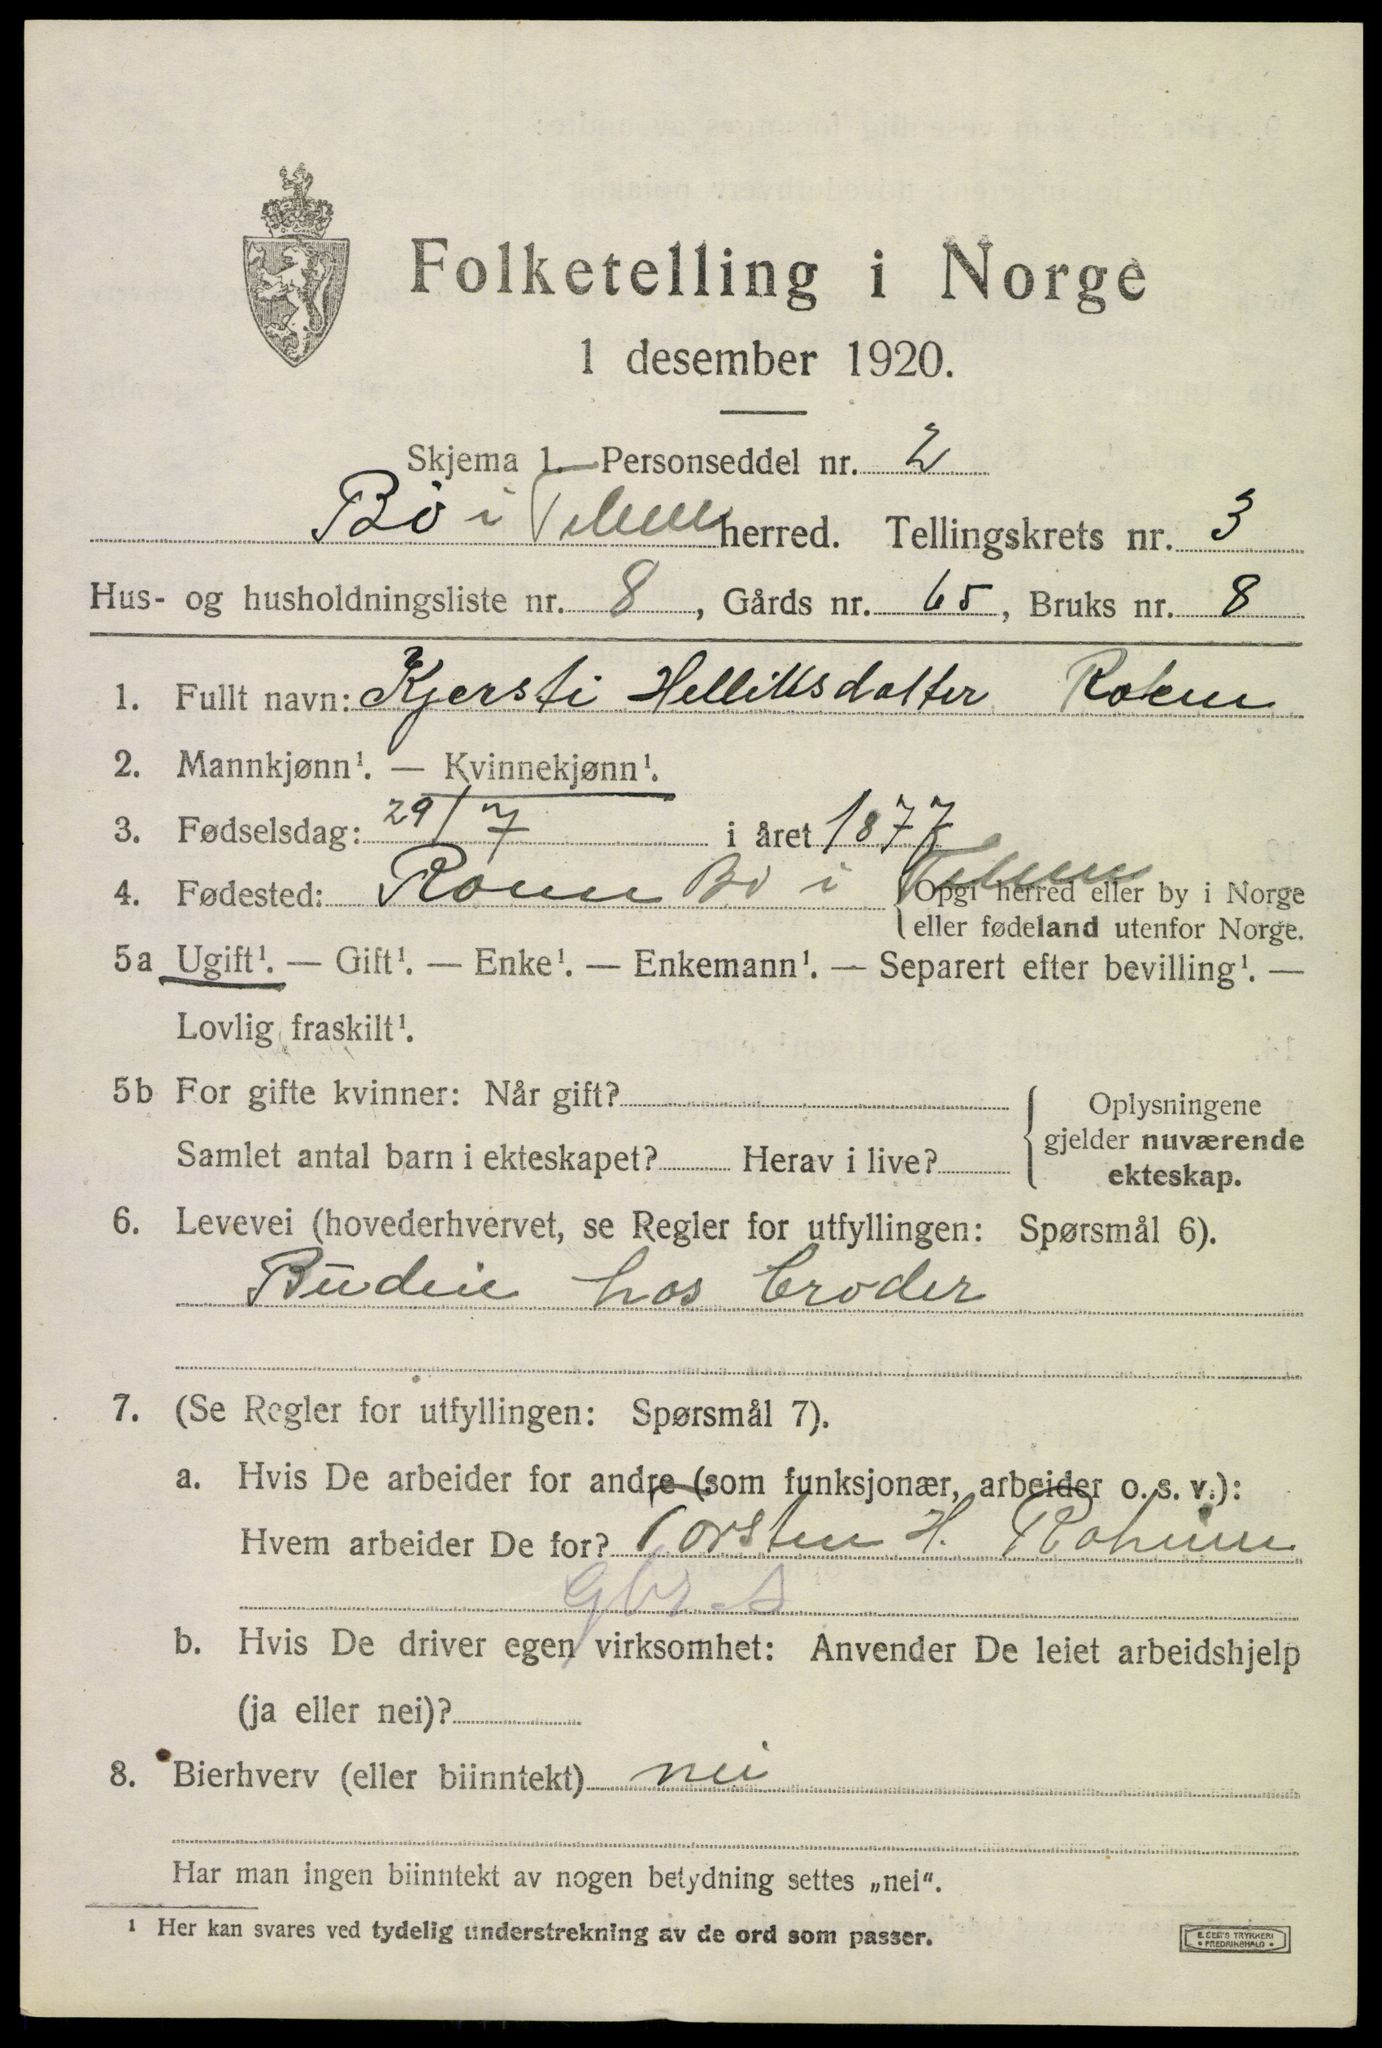 Folketelling i Norge
1 desember 1920.
Skjema 1. Personseddel nr. 2
Bø i Telem herred. Tellingskrets nr. 3
Hus- og husholdningsliste nr. 8, Gårds nr. 65, Bruks nr. 8
1. Fullt navn: Kjersti Helliksdatter
2. Mannkjønn¹. — Kvinnekjønn¹.
3. Fødselsdag: 29/7 i året 1877
4. Fødested: Bø i Telem {Opgi herred eller by i Norge
eller fødeland utenfor Norge.
5a Ugift¹. — Gift¹. — Enke¹. — Enkemann¹. — Separert efter bevilling¹. —
Lovlig fraskilt¹.
5b For gifte kvinner: Når gift?
Samlet antal barn i ekteskapet? Herav i live?
{Oplysningene
gjelder nuværende
ekteskap.
6. Levevei (hovederhvervet, se Regler for utfyllingen: Spørsmål 6).
Budeie hos broder
7. (Se Regler for utfyllingen: Spørsmål 7).
a. Hvis De arbeider for andre (som funksjonær, arbeider o. s. v.):
Hvem arbeider De for? Torsten H.
Gbr. S
b. Hvis De driver egen virksomhet: Anvender De leiet arbeidshjelp
(ja eller nei)?
8. Bierhverv (eller biinntekt) nei
Har man ingen biinntekt av nogen betydning settes „nei".
¹ Her kan svares ved tydelig understrekning av de ord som passer.
E. SEM'S TRYKKERI
• FREDRIKSHALD •